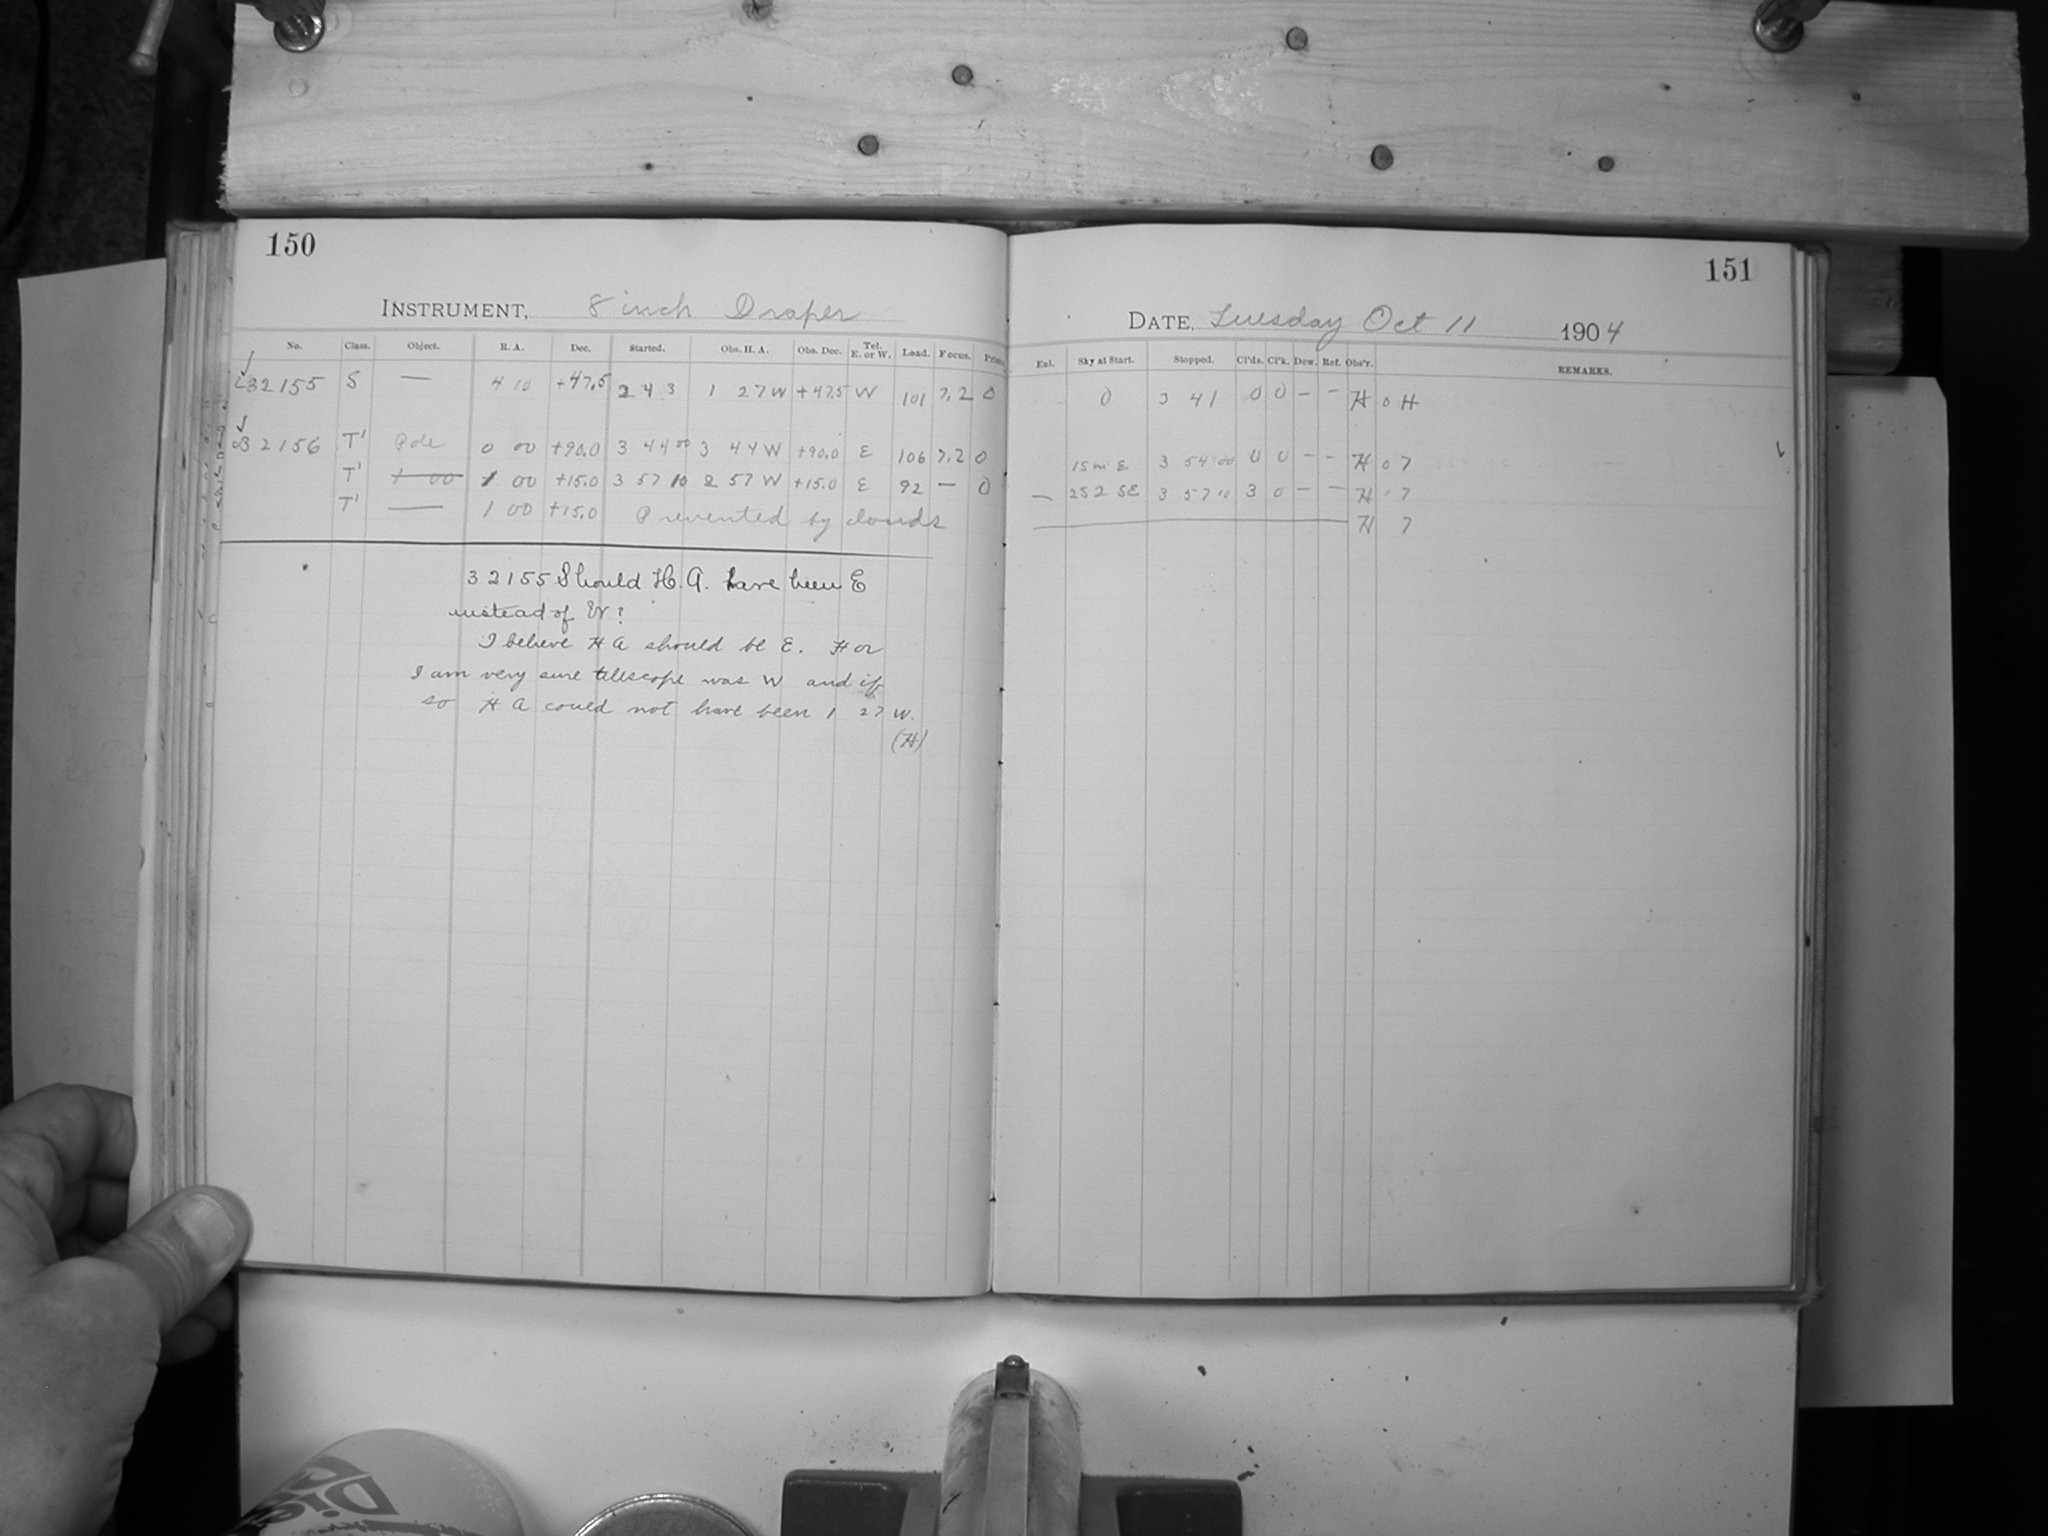 150
INSTRUMENT, 8 inch Draper
No. Class. Object. R. A. Dec. Started. Obs. H. A. Obs. Dec. Tel. E. or W. Load. Focus.
32155 S — 4 10 +47.5 2 43 1 27 W +47.5 W 101 7,2 0
32156 T' Pole 0 00 +90.0 3 44 00 3 44 W +90.0 E 106 7,2 0
T' 1 00 1 00 +15.0 3 57 10 2 57 W +15.0 E 92 — 0
T' — 1 00 +15.0 Prevented by clouds
32155 Should H. A. have been E
instead of W?
I believe H A should be E. For
I am very sure telescope was W and if
so H A could not have been 1 27 W.
(H)
151
DATE, Tuesday Oct 11 1904
Exl. Sky at Start. Stopped. Cl'ds. Cl'k. Dew. Ref. Obs'r. REMARKS.
0 3 41 0 0 – – H 0 H
15m E 3 54 00 0 0 – – H 0 7
— 252 SE 3 57 10 3 0 – – H 7
H 7